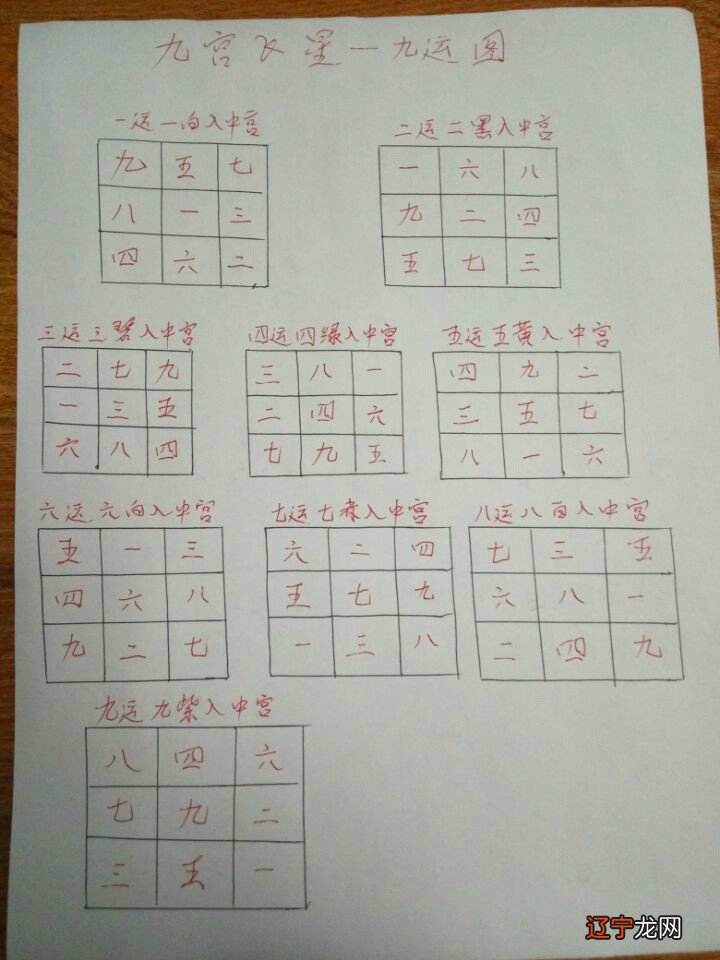 九宫飞星一九运图
一运一白入中宫
九 五 七
八 一 三
四 六 二
二运二黑入中宫
一 六 八
九 二 四
五 七 三
三运三碧入中宫
二 七 九
一 三 五
六 八 四
四运四绿入中宫
三 八 一
二 四 六
七 九 五
五运五黄入中宫
四 九 二
三 五 七
八 一 六
六运六白入中宫
五 一 三
四 六 八
九 二 七
七运七赤入中宫
六 二 四
五 七 九
一 三 八
八运八白入中宫
七 三 五
六 八 一
二 四 九
九运九紫入中宫
八 四 六
七 九 二
三 五 一
辽宁龙网